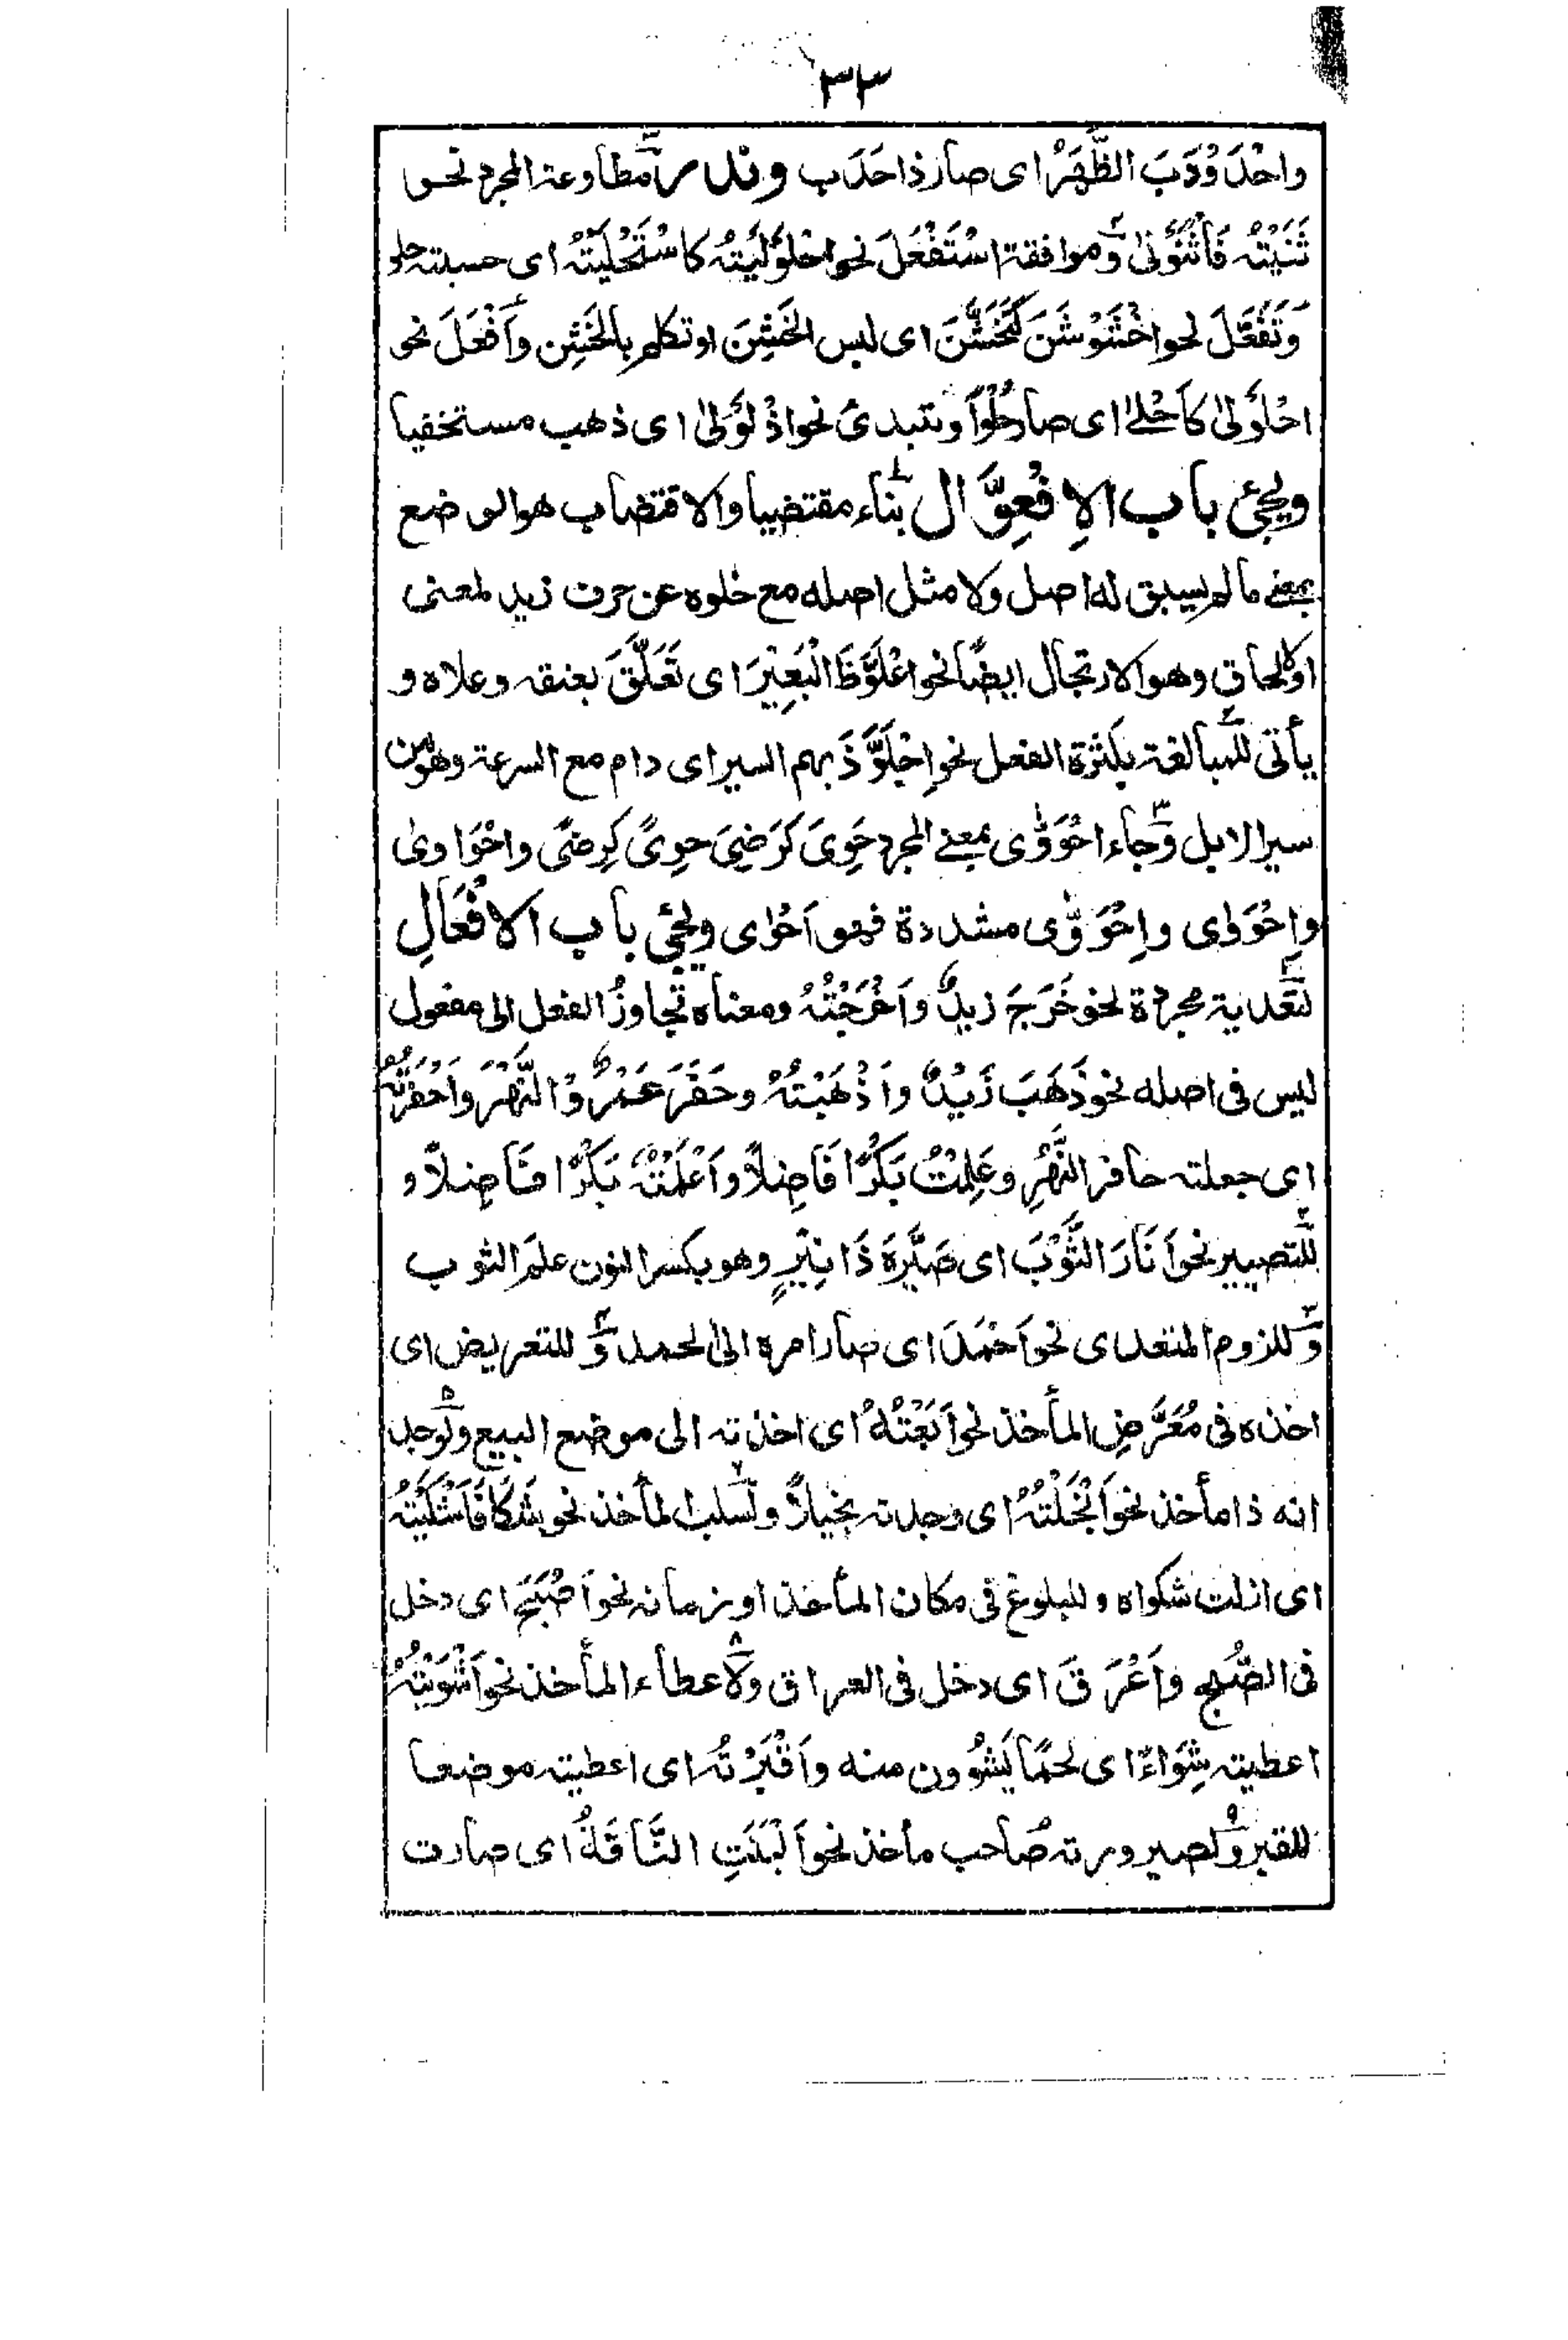 ٣٣
واحْدَوْدَبَ الظَّهْرُ اى صار ذا حَدَب وندر مطاوعة المجرد نحو
ثَنَيْتُه فَاثْنَوْنىٰ وموافقة اسْتَفْعَلَ نحو احْلَوْلَيْتُه كاسْتَحْلَيْتُه اى حسبته حلو
وَتَفَعَّلَ نحو اخْشَوْشَنَ كَتَخَشَّنَ اى لبس الخَشِنَ او تكلم بالخَشِن وأَفْعَلَ نحو
احْلَوْلىٰ كأَحْلىٰ اى صار حُلْوًا ويبتدئ نحو اذْلَوْلىٰ اى ذهب مستخفيا
ويجئ باب الاِفْعِوَّال بناء مقتضيا والاقتضاب هو الوضع
بمعنى ما لم يسبق له اصل ولا مثل اصله مع خلوه عن حرف زيد لمعنى
او لالحاق وهو الارتجال ايضًا نحو اعْلَوَّظَ الْبَعِيْرَ اى تَعَلَّقَ بعنقه وعلاه و
يأتى للمبالغة بكثرة الفعل نحو اِجْلَوَّذَ بهم السير اى دام مع السرعة وهو من
سير الابل وجاء احْوَوّٰى بمعنى المجرد حَوِىَ كَرَضِىَ حِوىً كَرِضىً واحْوَاوىٰ
واِحْوَوٰى واِحْوَوّٰى مشددة فهو اَحْوٰى ويجئ باب الافْعَالِ
لتعدية مجردة نحو خَرَجَ زيدٌ واَخْرَجْتُهُ ومعناه تجاوزُ الفعل الى مفعول
ليس فى اصله نحو ذَهَبَ زَيْدٌ واَذْهَبْتُهُ وحَفَرَ عَمْرٌو النَّهْرَ واَحْفَرْتُهُ
اى جعلته حافر النَّهْرِ وعَلِمْتُ بَكْرًا فَاضِلاً واَعْلَمْتُهُ بَكْرًا فَاضِلاً و
للتصيير نحو اَنَارَ الثَّوْبَ اى صَيَّرَهُ ذَا نِيْرٍ وهو بكسر النون علم الثوب
وللزوم المتعدى نحو اَحْمَدَ اى صار امره الى الحمد وللتعريض اى
اخذه فى مُعَرَّضِ المأخذ نحو اَبَعْتُهُ اى اخذته الى موضع البيع ولوجد
انه ذا مأخذ نحو اَبْخَلْتُهُ اى وجدته بخيلاً ولسلب المأخذ نحو شَكَا فَاَشْكَيْتُهُ
اى ازلت شكواه وللبلوغ فى مكان المأخذ او زمانه نحو اَصْبَحَ اى دخل
فى الصُّبح واَعْرَقَ اى دخل فى العراق ولاعطاء المأخذ نحو اَشْوَيْتُهُ
اعطيته شِوَاءً اى لحمًا يَشْوُون منه واَقْبَرْتُه اى اعطيته موضعا
للقبر ولصيرورته صاحب مأخذ نحو اَلْبَنَتِ النَّاقَةُ اى صارت